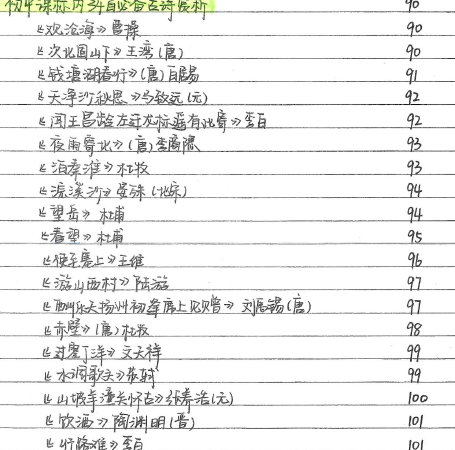 初中课标内34首必备古诗赏析 90
《观沧海》曹操 90
《次北固山下》王湾(唐) 90
《钱塘湖春行》(唐)白居易 91
《天净沙秋思》马致远(元) 92
《闻王昌龄左迁龙标遥有此寄》李白 92
《夜雨寄北》(唐)李商隐 93
《泊秦淮》杜牧 93
《浣溪沙》晏殊(北宋) 94
《望岳》杜甫 94
《春望》杜甫 95
《使至塞上》王维 96
《游山西村》陆游 97
《酬乐天扬州初逢席上见赠》刘禹锡(唐) 97
《赤壁》(唐)杜牧 98
《过零丁洋》文天祥 99
《水调歌头》苏轼 99
《山坡羊潼关怀古》张养浩(元) 100
《饮酒》陶渊明(晋) 101
《行路难》李白 101